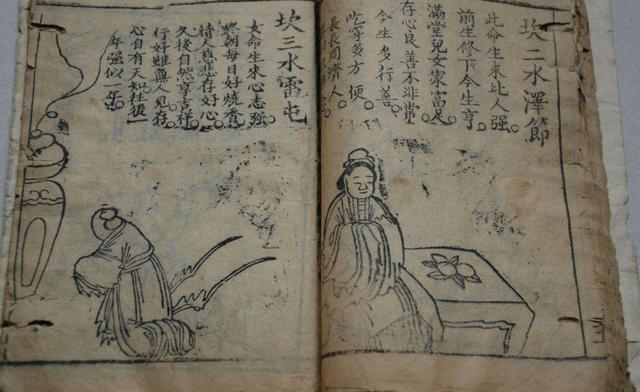 坎二水澤節
此命生來比人强
前生修下今生亨
滿堂兒女家富足
存心良善不非常
今生多行善
吃穿多方便
長長周濟人
坎三水雷屯
女命生來心志强
終朝每日好燒香
待人慈悲存好心
久後自然享吉祥
行好雖無人見存
心自有天知往後一
年强似一年